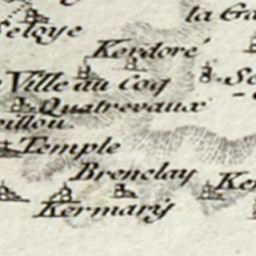 la Ga
Seloye
Kerdoré
Ville au Coq
Se
Quatrevaux
eillou
Temple
Brenelay
Ker
Kermarÿs